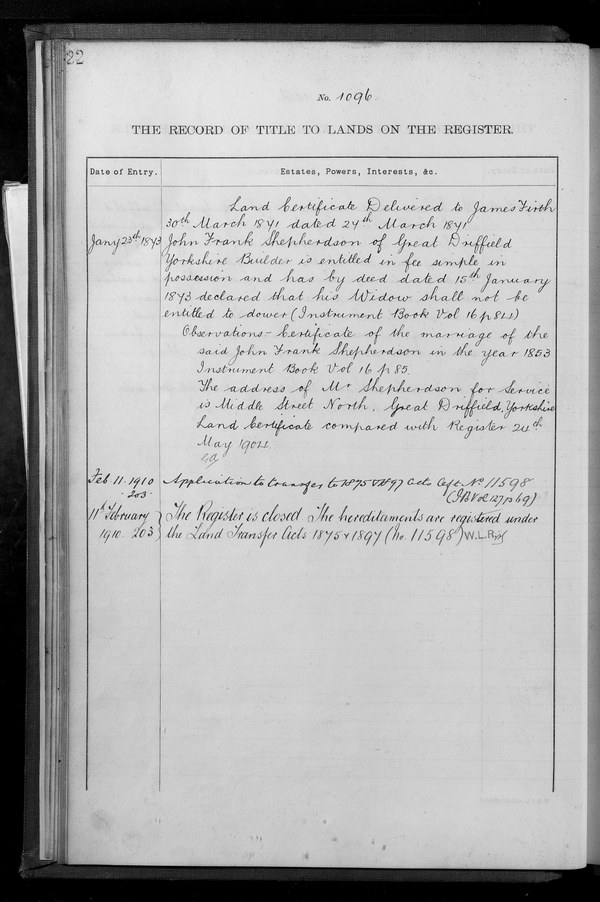 22
No. 1096.
THE RECORD OF TITLE TO LANDS ON THE REGISTER.
Date of Entry.
Estates, Powers, Interests, &c.
Land Certificate Delivered to James Firth
30th March 1871 dated 27th March 1871
Jany 23rd 1873
John Frank Shepherdson of Great Driffield
Yorkshire Builder is entitled in fee simple in
possession and has by deed dated 15th January
1873 declared that his Widow shall not be
entitled to dower (Instrument Book Vol 16 p 84)
Observations - Certificate of the marriage of the
said John Frank Shepherdson in the year 1853
Instrument Book Vol 16 p 85.
The address of Mr Shepherdson for Service
is Middle Street North, Great Driffield, Yorkshire
Land Certificate compared with Register 24th
May 1904.
Feb 11. 1910
203
Application to transfer to 1875 & 1897 Acts Ceft No 11598
(I B Vol 127 p 69)
11th February
1910. 203
The Register is closed The hereditaments are registered under
the Land Transfer Acts 1875 & 1897 (No. 11598)